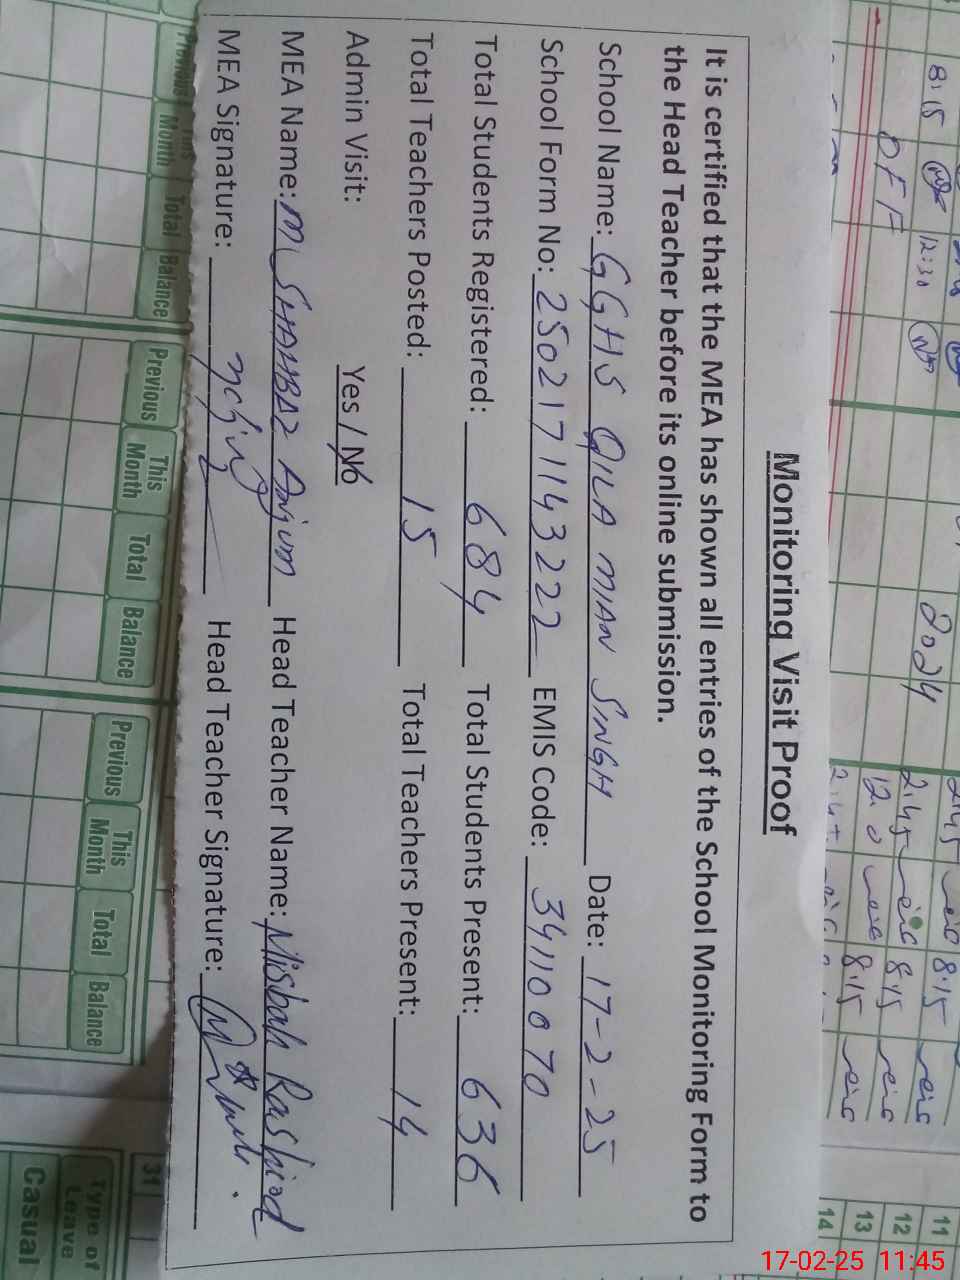 Monitoring Visit Proof
It is certified that the MEA has shown all entries of the School Monitoring Form to
the Head Teacher before its online submission.
School Name: GGHS QILA MIAN SINGH Date: 17-2-25
School Form No: 2502171143222 EMIS Code: 34110070
Total Students Registered: 684 Total Students Present: 636
Total Teachers Posted: 15 Total Teachers Present: 14
Admin Visit: Yes / No
MEA Name: M SHAHBAZ Anjum Head Teacher Name: Misbah Rashid
MEA Signature: Head Teacher Signature:
8:15 12:30
OFF
2024
2:45 8:15
2:45 8:15
12 8:15
11
12
13
14
31
Previous This Month Total Balance
Previous This Month Total Balance
Previous This Month Total Balance
Type of Leave
Casual
17-02-25 11:45